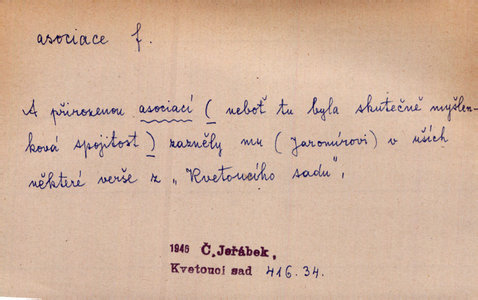 asociace f.
A přirozenou asociací ( neboť tu byla skutečně myšlen-
ková spojitost ) zazněly mu ( Jaromírovi ) v uších
některé verše z „Kvetoucího sadu",
1946 Č. Jeřábek,
Kvetoucí sad 416. 34.